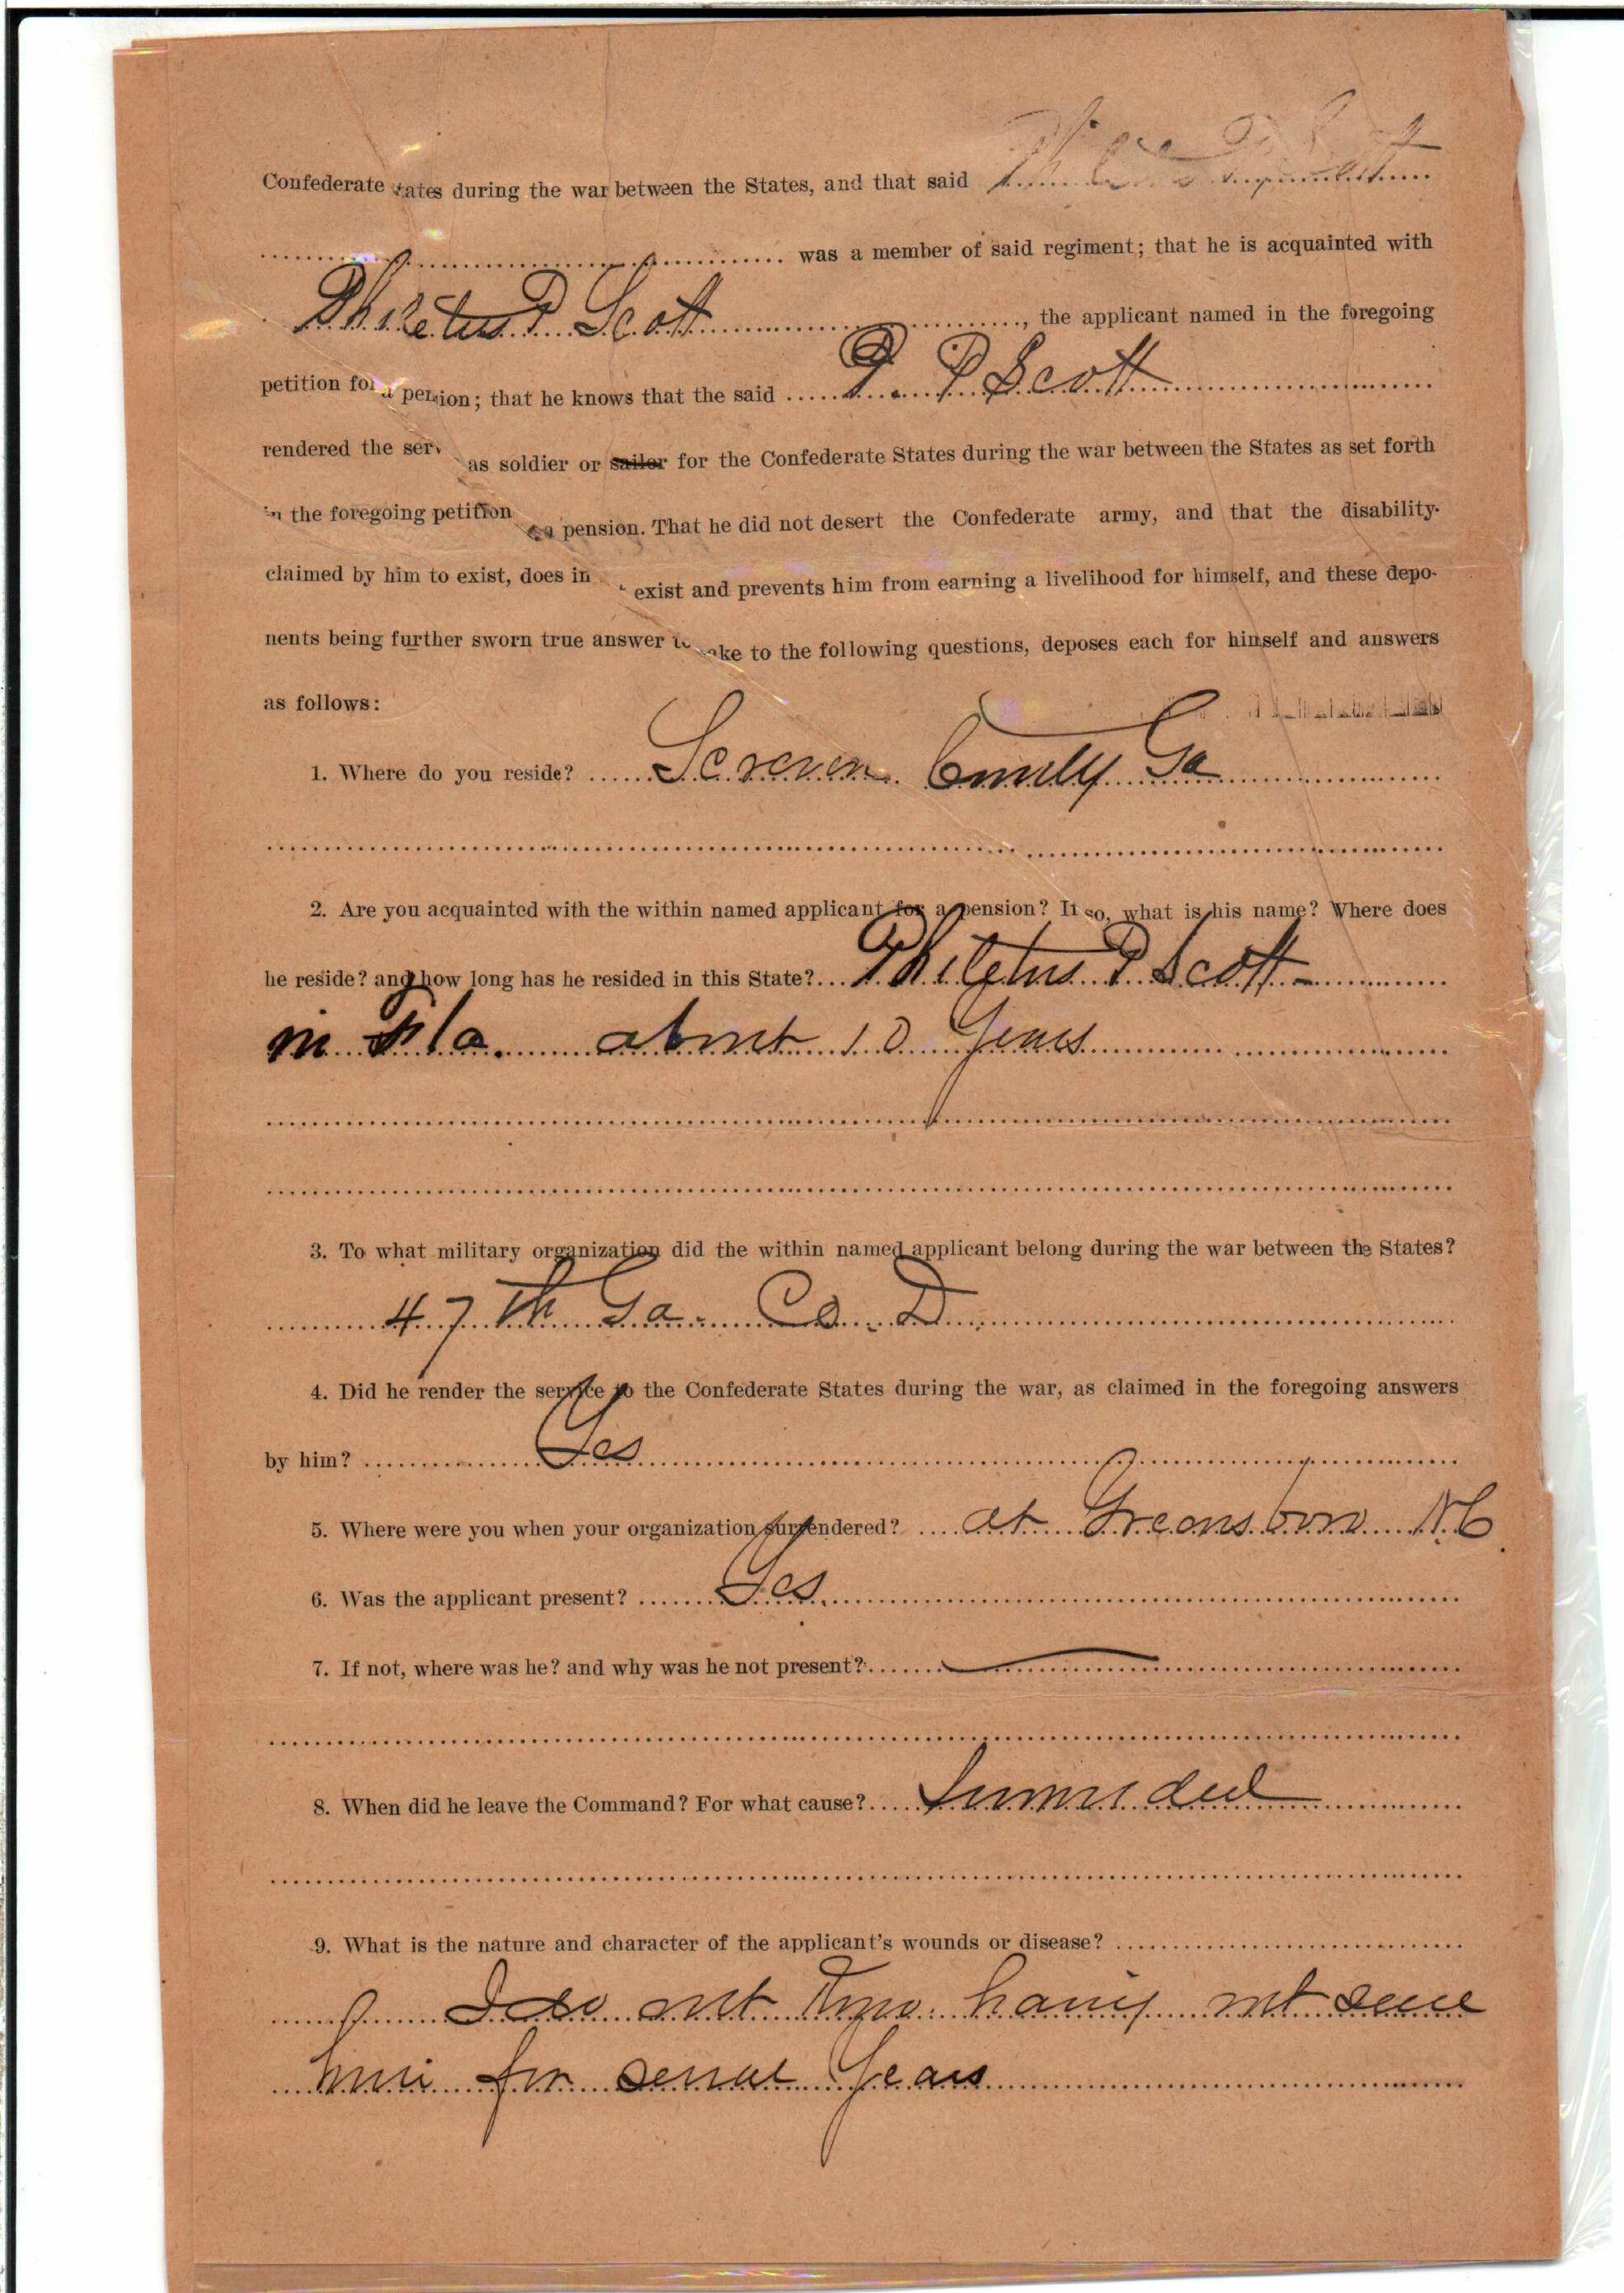 Confederate tates during the war between the States, and that said
was a member of said regiment; that he is acquainted with
Philetus P Scott, the applicant named in the foregoing
petition for a pension; that he knows that the said P. P Scott
rendered the serv as soldier or sailor for the Confederate States during the war between the States as set forth
in the foregoing petition a pension. That he did not desert the Confederate army, and that the disability
claimed by him to exist, does in exist and prevents him from earning a livelihood for himself, and these depo-
nents being further sworn true answer to make to the following questions, deposes each for himself and answers
as follows:
1. Where do you reside? Screven County Ga
2. Are you acquainted with the within named applicant for a pension? If so, what is his name? Where does
he reside? and how long has he resided in this State? Philetus P Scott -
in Fla. about 10 years
3. To what military organization did the within named applicant belong during the war between the States?
47th Ga. Co. D.
4. Did he render the service to the Confederate States during the war, as claimed in the foregoing answers
by him? Yes
5. Where were you when your organization surrendered? at Greensboro N.C.
6. Was the applicant present? Yes.
7. If not, where was he? and why was he not present?
8. When did he leave the Command? For what cause? Surrendered
9. What is the nature and character of the applicant's wounds or disease?
I do not know having not seen
him for several years